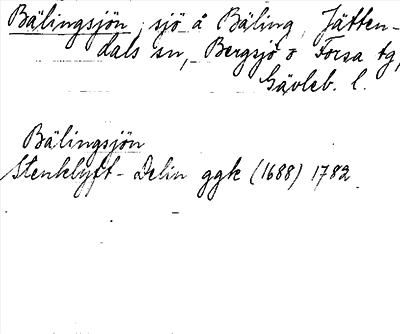 Bälingsjön, sjö å Bäling, Jätten-
dals sn, Bergsjö o Forsa tg,
Gävleb. l.
Bälingsjön
Stenklyft - Delin ggk (1688) 1782